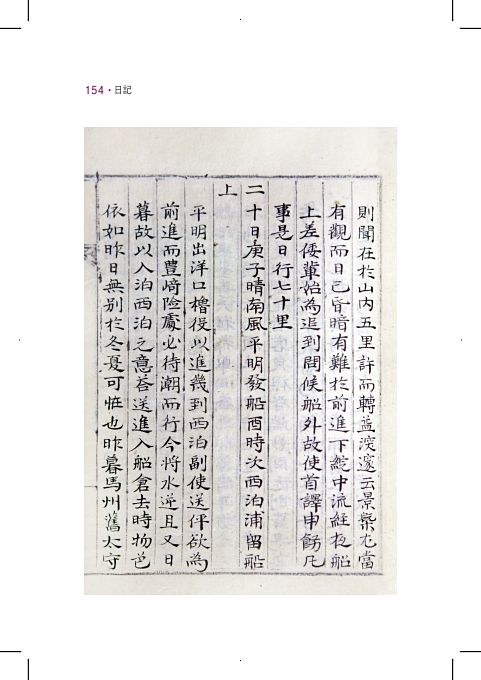 154・日記
則聞在於山內五里許而轉益深邃云景槩尤當
有觀而日已昏暗有難於前進下碇中流經夜船
上差倭輩始為追到問候船外故使首譯申飭凡
事是日行七十里
二十日庚子晴南風平明發船酉時次西泊浦留船
上
平明出洋口櫓役以進幾到西泊副使送伻欲為
前進而豊崎險處必待潮而行今將水逆且又日
暮故以入泊西泊之意荅送進入船倉去時物色
依如昨日無別於冬夏可恠也昨暮馬州舊太守